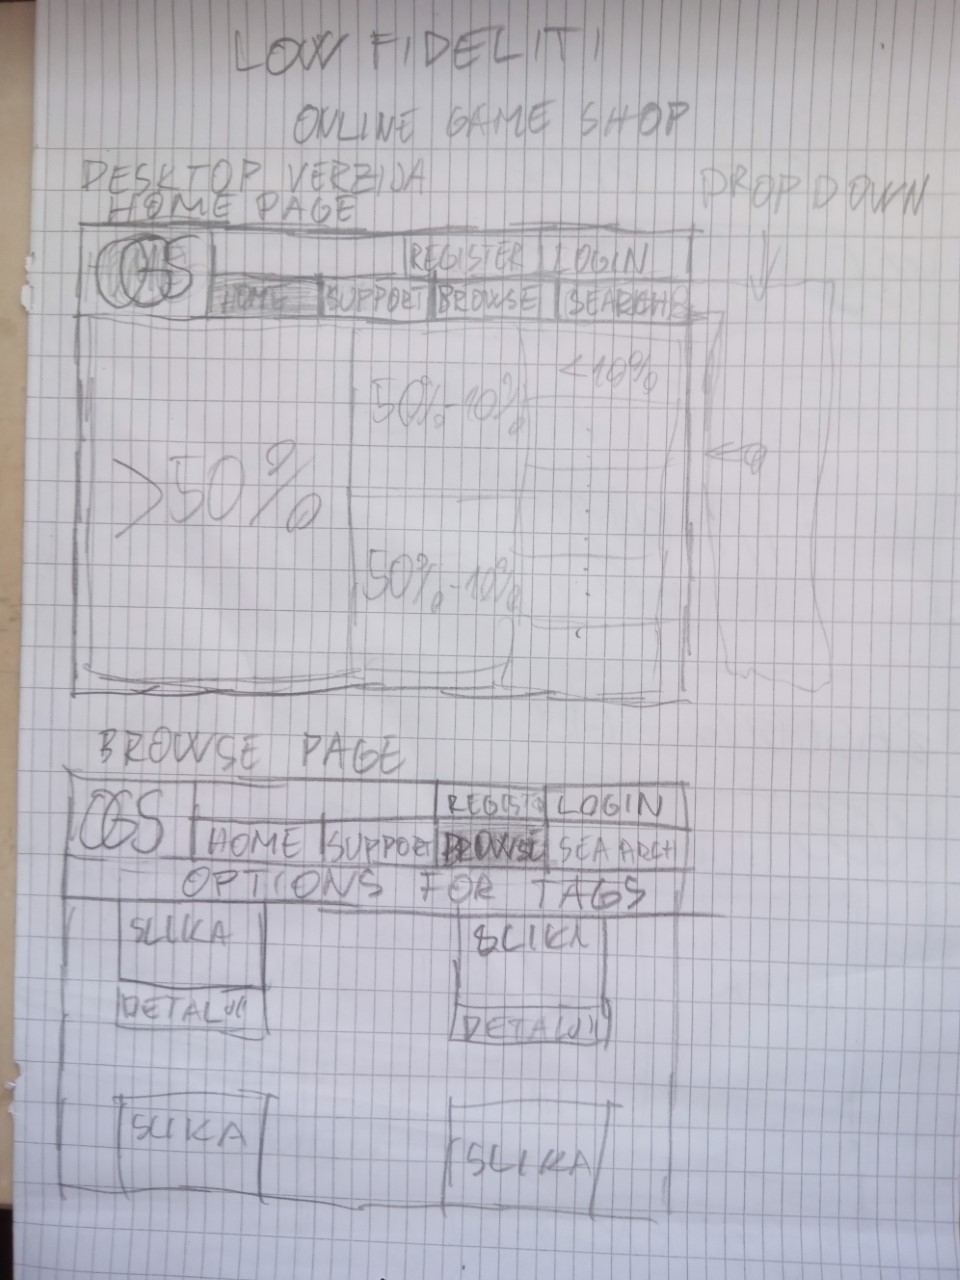 LOW FIDELITI
ONLINE GAME SHOP
DESKTOP VERZIJA
HOME PAGE
DROP DOWN
OGS
REGISTER LOGIN
HOME SUPPORT BROWSE SEARCH
>50%
50%-10%
<10%
50%-10%
BROWSE PAGE
OGS
REGISTE LOGIN
HOME SUPPORT BROWSE SEARCH
OPTIONS FOR TAGS
SLIKA SLIKA
DETALJI DETALJI
SLIKA SLIKA